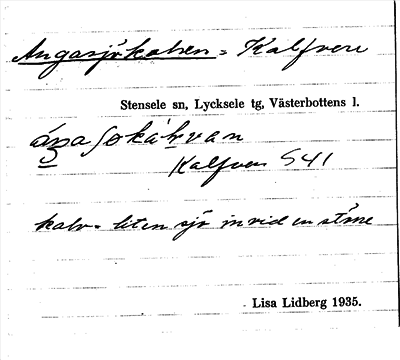 Angasjökalven = Kalfven
Stensele sn, Lycksele tg, Västerbottens l.
Kalfven S41
kalv = liten sjö invid en större
Lisa Lidberg 1935.